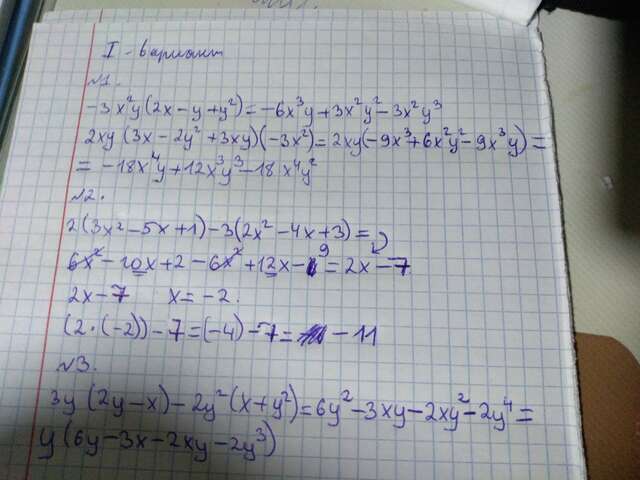 I - вариант
№1.
-3x²y(2x-y+y²)=-6x³y+3x²y²-3x²y³
2xy(3x-2y²+3xy)(-3x²)=2xy(-9x³+6x²y²-9x³y)=
=-18x⁴y+12x³y³-18x⁴y²
№2.
2(3x²-5x+1)-3(2x²-4x+3)=
6x²-10x+2-6x²+12x-9=2x-7
2x-7 x=-2.
(2·(-2))-7=(-4)-7=-11
№3.
3y(2y-x)-2y²(x+y²)=6y²-3xy-2xy²-2y⁴=
y(6y-3x-2xy-2y³)